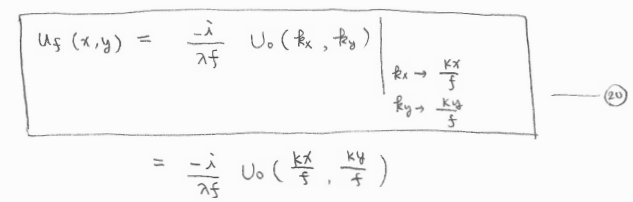 u_f (x,y) = \frac{-i}{λf} U_0 ( k_x , k_y ) |_{k_x → \frac{kx}{f}, k_y → \frac{ky}{f}} —— ⑳
= \frac{-i}{λf} U_0 ( \frac{kx}{f} , \frac{ky}{f} )